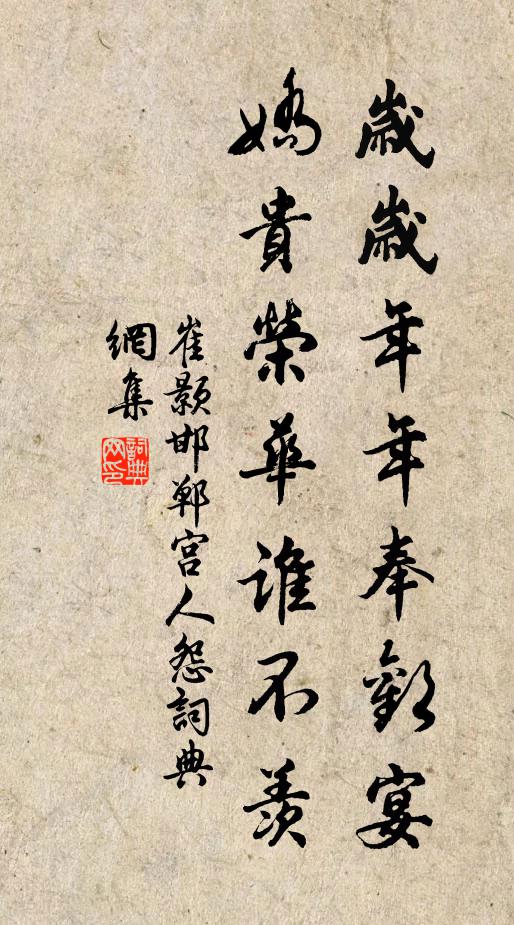 歲歲年年奉歡宴
嬌貴榮華誰不羨
崔顥邯鄲宮人怨詞典
網集
詞典
网印